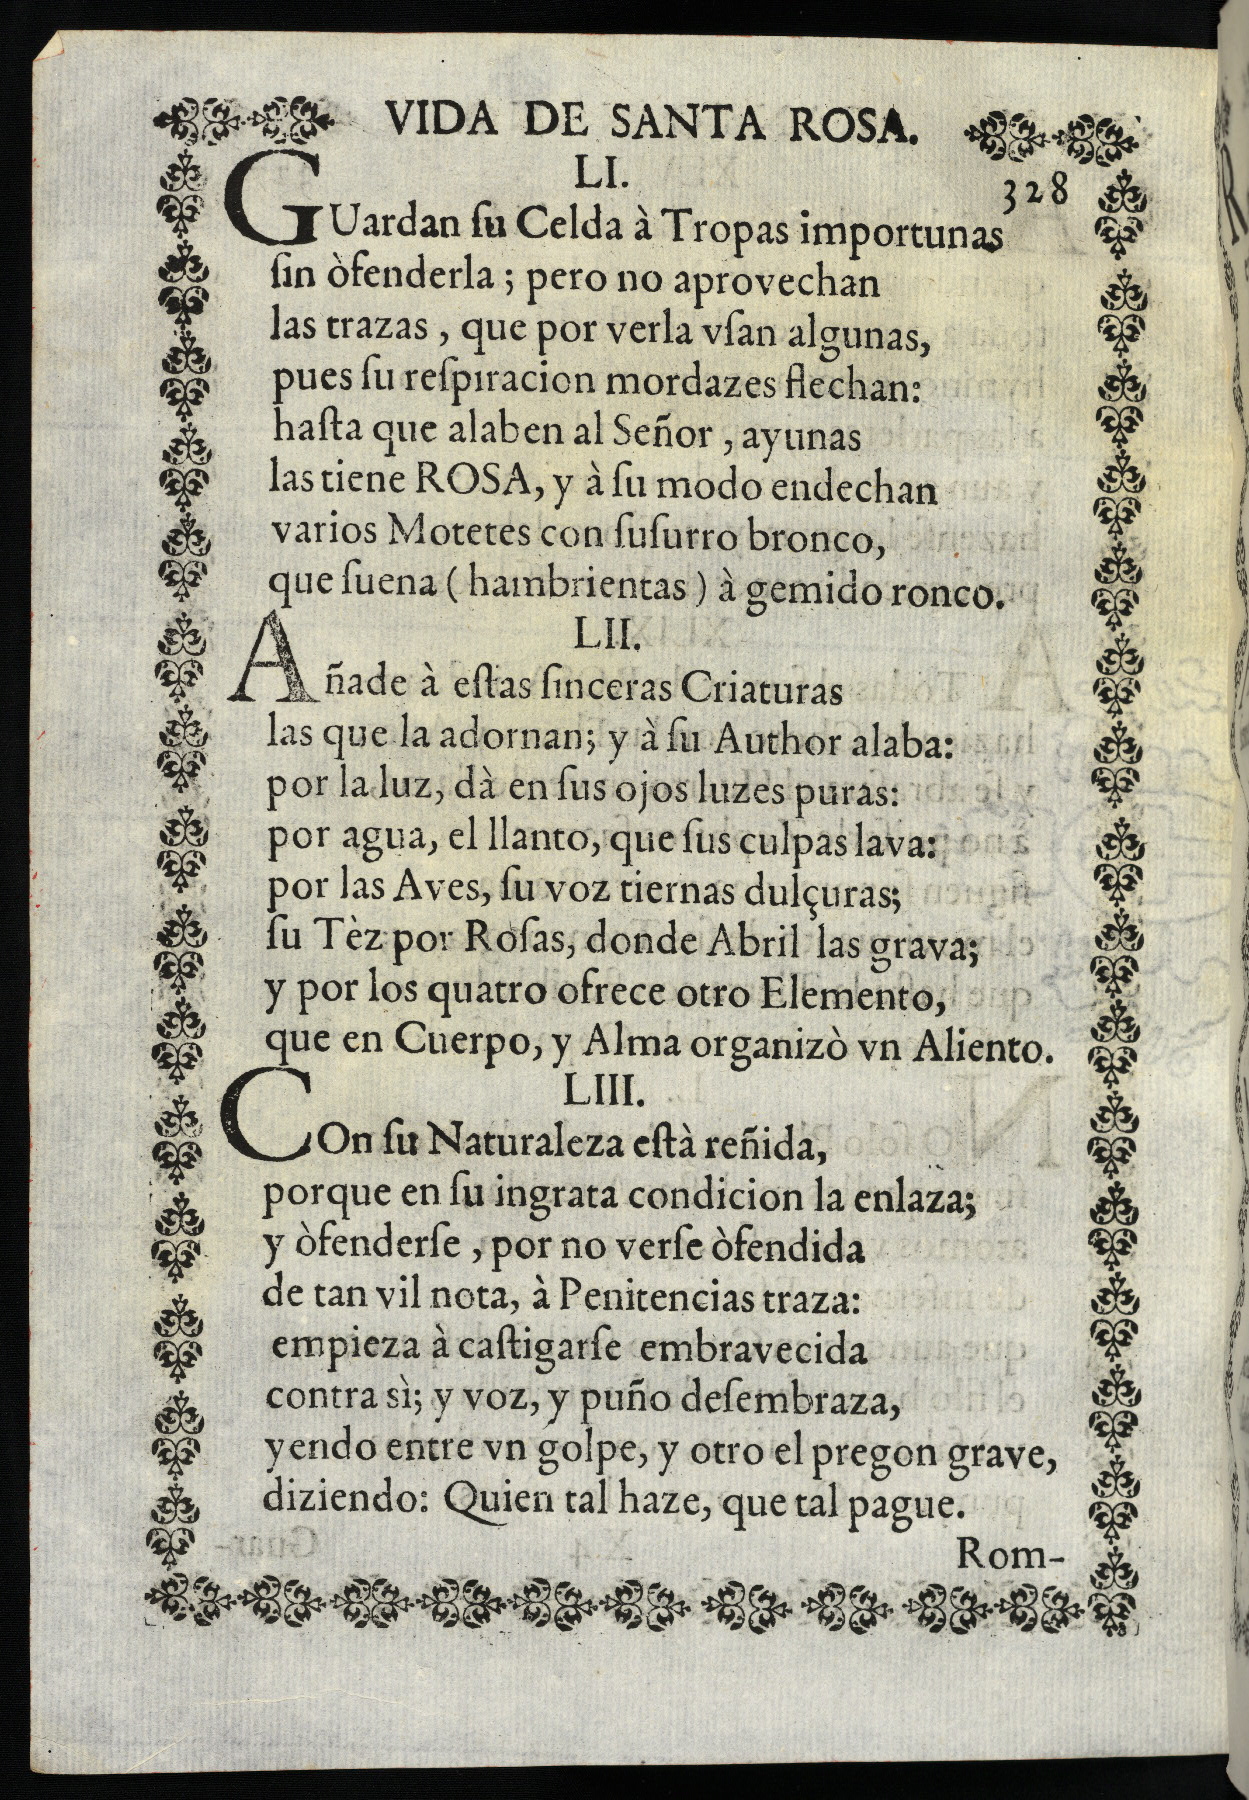 VIDA DE SANTA ROSA.
LI.
328
GUardan ſu Celda à Tropas importunas
ſin òfenderla ; pero no aprovechan
las trazas , que por verla vſan algunas,
pues ſu reſpiracion mordazes flechan:
haſta que alaben al Señor , ayunas
las tiene ROSA, y à ſu modo endechan
varios Motetes con ſuſurro bronco,
que ſuena ( hambrientas ) à gemido ronco.
LII.
Añade à eſtas ſinceras Criaturas
las que la adornan; y à ſu Author alaba:
por la luz, dà en ſus ojos luzes puras:
por agua, el llanto, que ſus culpas lava:
por las Aves, ſu voz tiernas dulçuras;
ſu Tèz por Roſas, donde Abril las grava;
y por los quatro ofrece otro Elemento,
que en Cuerpo, y Alma organizò vn Aliento.
LIII.
COn ſu Naturaleza eſtà reñida,
porque en ſu ingrata condicion la enlaza;
y òfenderſe , por no verſe òfendida
de tan vil nota, à Penitencias traza:
empieza à caſtigarſe embravecida
contra sì; y voz, y puño deſembraza,
yendo entre vn golpe, y otro el pregon grave,
diziendo: Quien tal haze, que tal pague.
Rom-